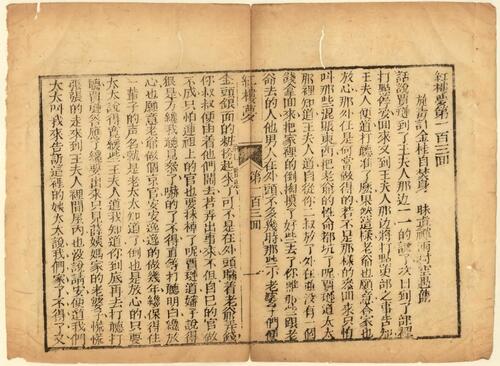 紅樓夢第一百三回
施毒計金桂自焚身　昧真禪雨村空遇舊
話說賈璉到了王夫人那邊一一的說了次日到了部裡
打點停妥回來又到王夫人那邊將打點吏部之事告知
王夫人便道打聽准了麼果然這樣老爺也願意合家也
放心那外任是何嘗做得的若不是那樣的叅回來只怕
叫那些混賬東西把老爺的性命都坑了呢賈璉道太太
那裡知道王夫人道自從你二叔放了外任並沒有一個
錢拿回來把家裡的倒掏摸了好些去了你瞧那些跟老
爺去的人他男人在外頭不多幾時那些小老婆子們便
紅樓夢　第一百三回　一
金頭銀面的粧扮起來了可不是在外頭瞞着老爺弄錢
你叔叔便由着他們鬧去若弄出事來不但自己的官做
不成只怕連祖上的官也要抹掉了呢賈璉道嬸子說得
很是方纔我聽見叅了嚇的了不得直等打聽明白纔放
心也願意老爺做個京官安安逸逸的做幾年纔保得住
一輩子的聲名就是老太太知道了倒也是放心的只要
太太說得寬緩些王夫人道我知道你到底再去打聽打
聽賈璉答應了纔要出來只見薛姨媽家的老婆子慌慌
張張的走來到王夫人裡間屋內也沒說請安便道我們
太太叫我來告訴這裡的姨太太說我們家了不得了又